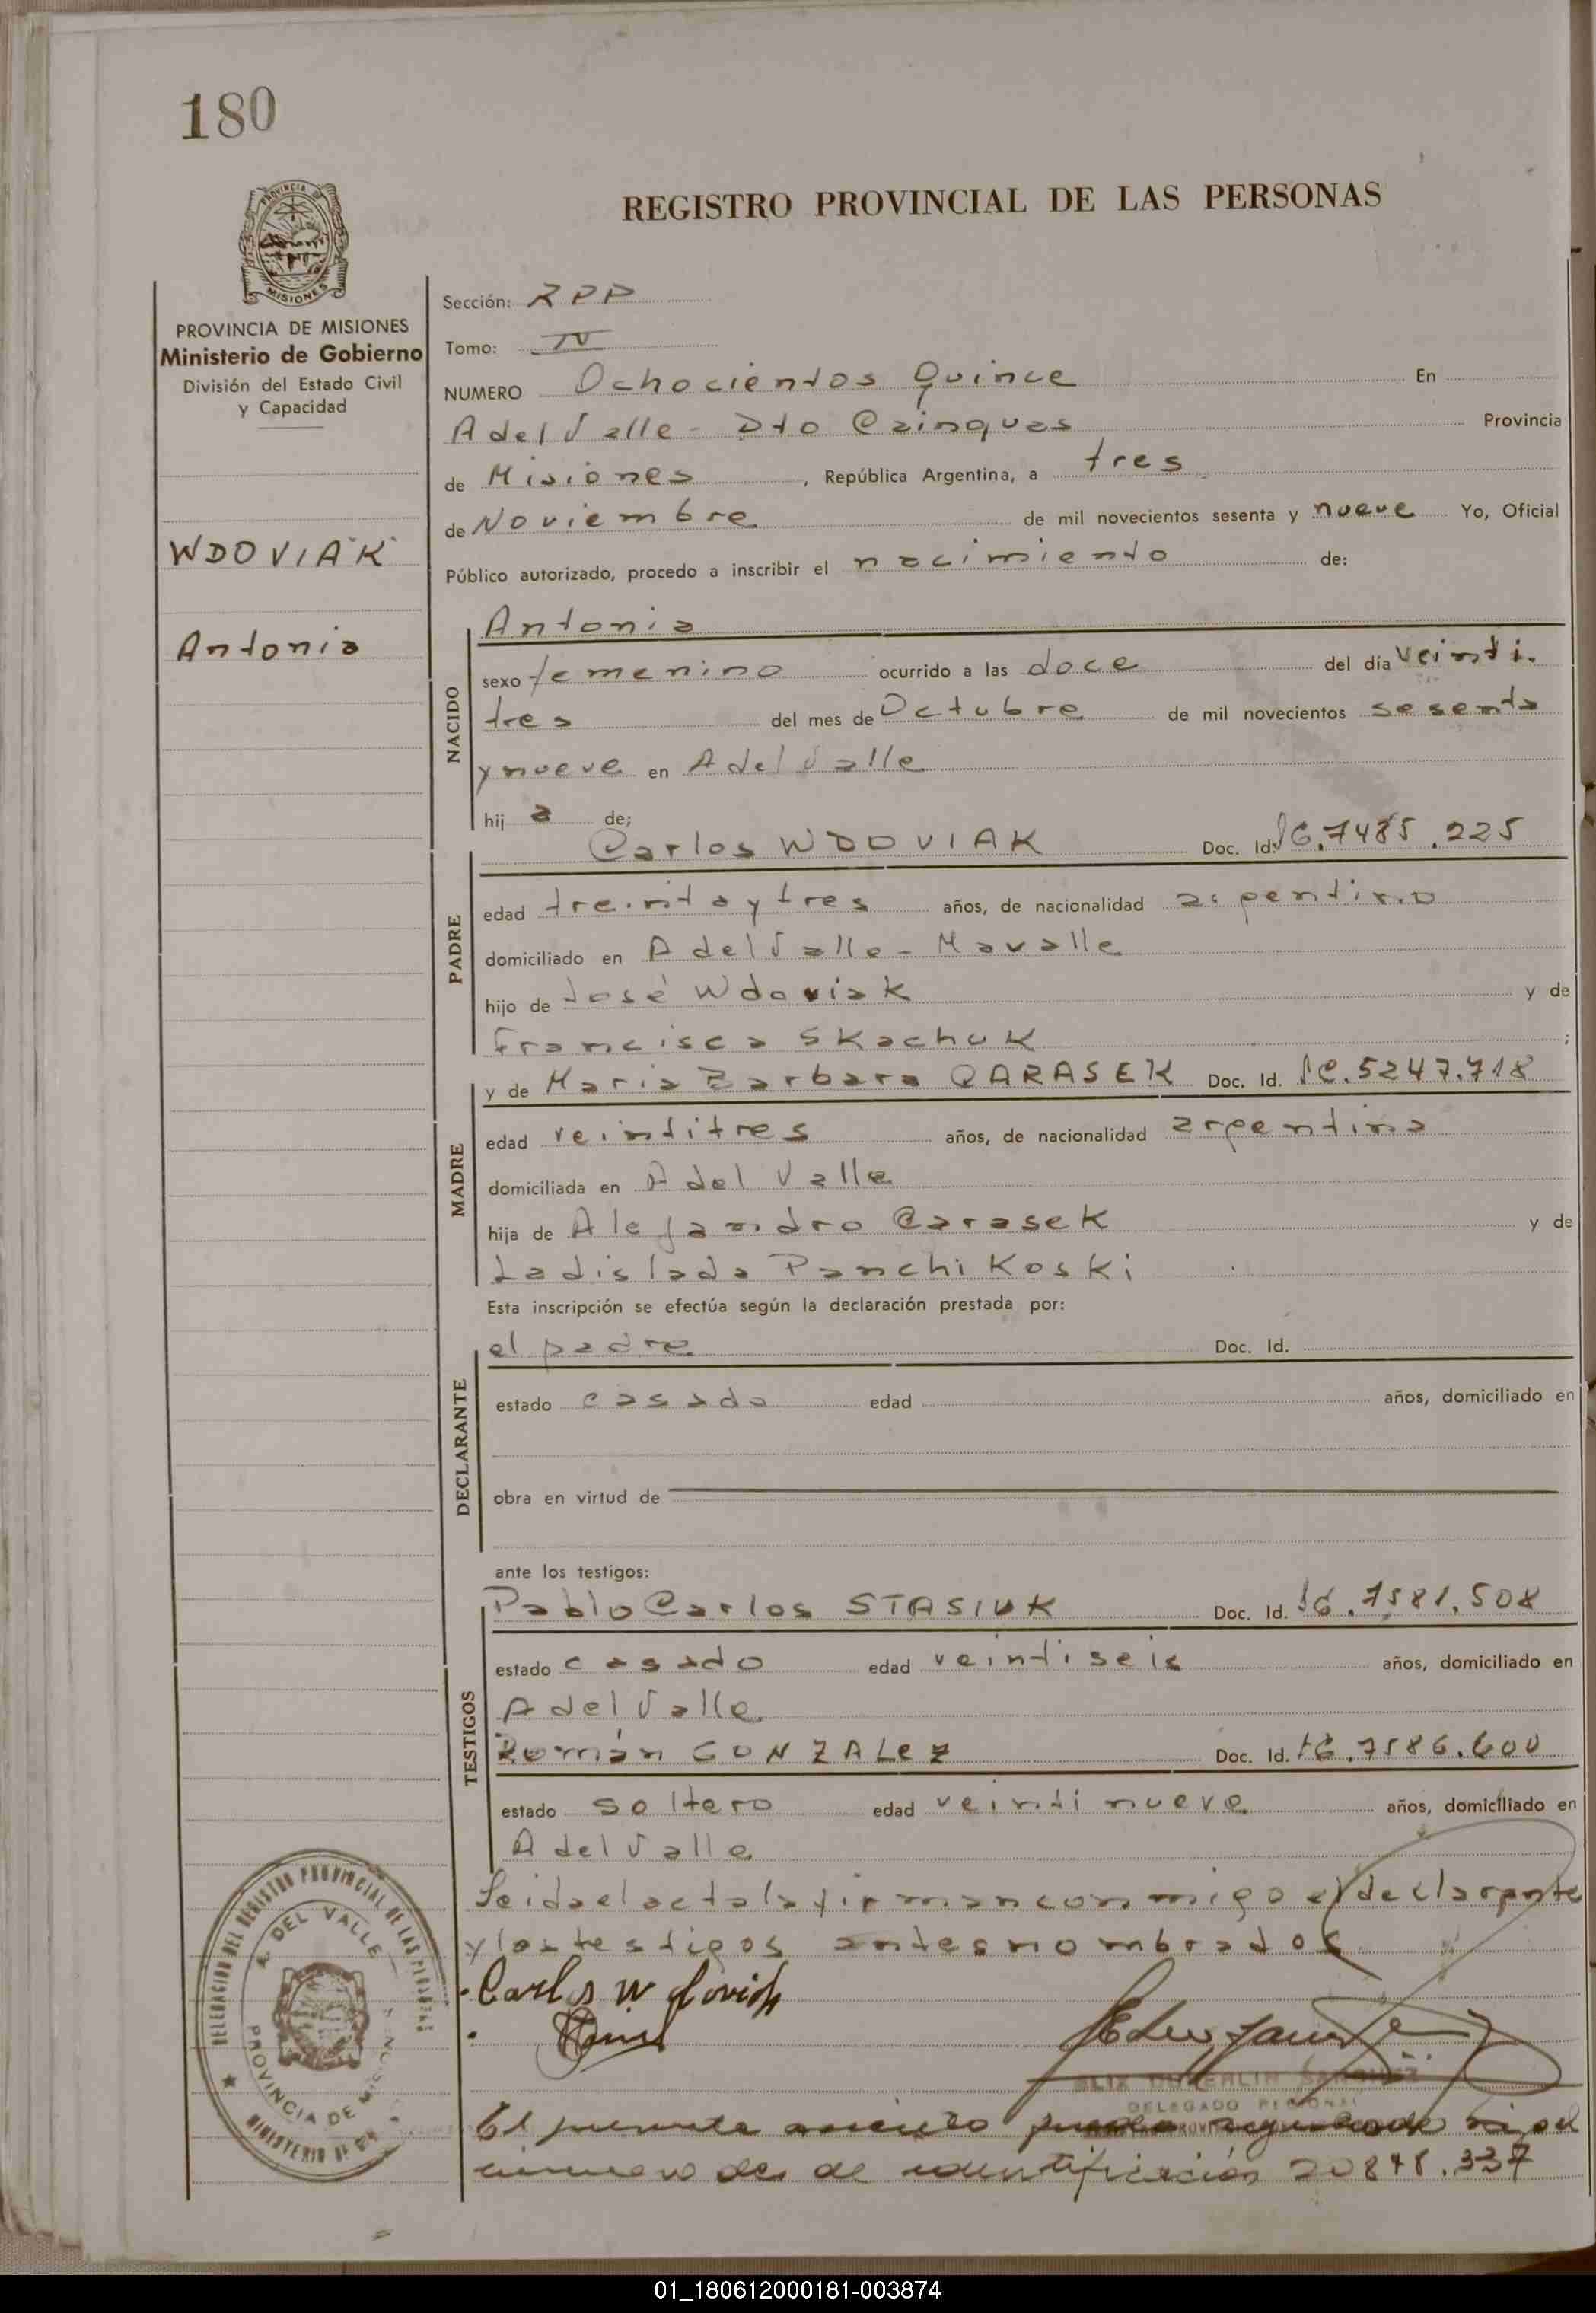 180
REGISTRO PROVINCIAL DE LAS PERSONAS
PROVINCIA DE MISIONES
PROVINCIA DE MISIONES
Ministerio de Gobierno
División del Estado Civil
y Capacidad
WDOVIAK
Antonia
Sección: RPP
Tomo: IV
NUMERO Ochocientos Quince En
A del Valle - Dto Cainguas Provincia
de Misiones, República Argentina, a tres
de Noviembre de mil novecientos sesenta y nueve Yo, Oficial
Público autorizado, procedo a inscribir el nacimiento de:
NACIDO
Antonia
sexo femenino ocurrido a las doce del día veinti
tres del mes de Octubre de mil novecientos sesenta
y nueve en A del Valle
hij a de;
PADRE
Carlos WDOVIAK Doc. Id. 7485.225
edad treinta y tres años, de nacionalidad argentino
domiciliado en A del Valle - Mavalle
hijo de José Wdoviak y de
Francisca Skachuk ;
MADRE
y de Maria Barbara CARASEK Doc. Id. 5247.718
edad veintitres años, de nacionalidad argentina
domiciliada en A del Valle
hija de Alejandro Carasek y de
Ladislada Panchikoski
Esta inscripción se efectúa según la declaración prestada por:
DECLARANTE
el padre Doc. Id.
estado casado edad años, domiciliado en
obra en virtud de
ante los testigos:
TESTIGOS
Pablo Carlos STASIUK Doc. Id. 7581.508
estado casado edad veintiseis años, domiciliado en
A del Valle
Román GONZALEZ Doc. Id. 7586.600
estado soltero edad veintinueve años, domiciliado en
A del Valle
Leida el acta la firman conmigo el declarante
y los testigos antes nombrados
Carlos
DELEGACION DEL REGISTRO PROVINCIAL DE LAS PERSONAS
A. DEL VALLE
PROVINCIA DE MISIONES
MINISTERIO DE
SANCHEZ
DELEGADO REGIONAL
El presente asiento
de identificación 20848.337
01_180612000181-003874